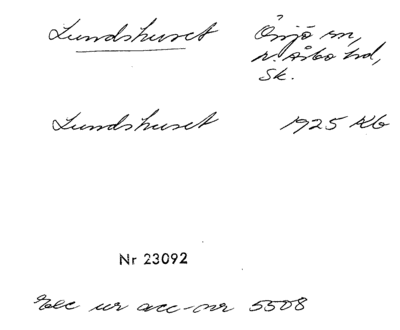 Lundshuset Önjö sn,
n. Åsbo hd,
Sk.
Lundshuset 1925 Kb
Nr 23092
Exc ur acc-nr 5508